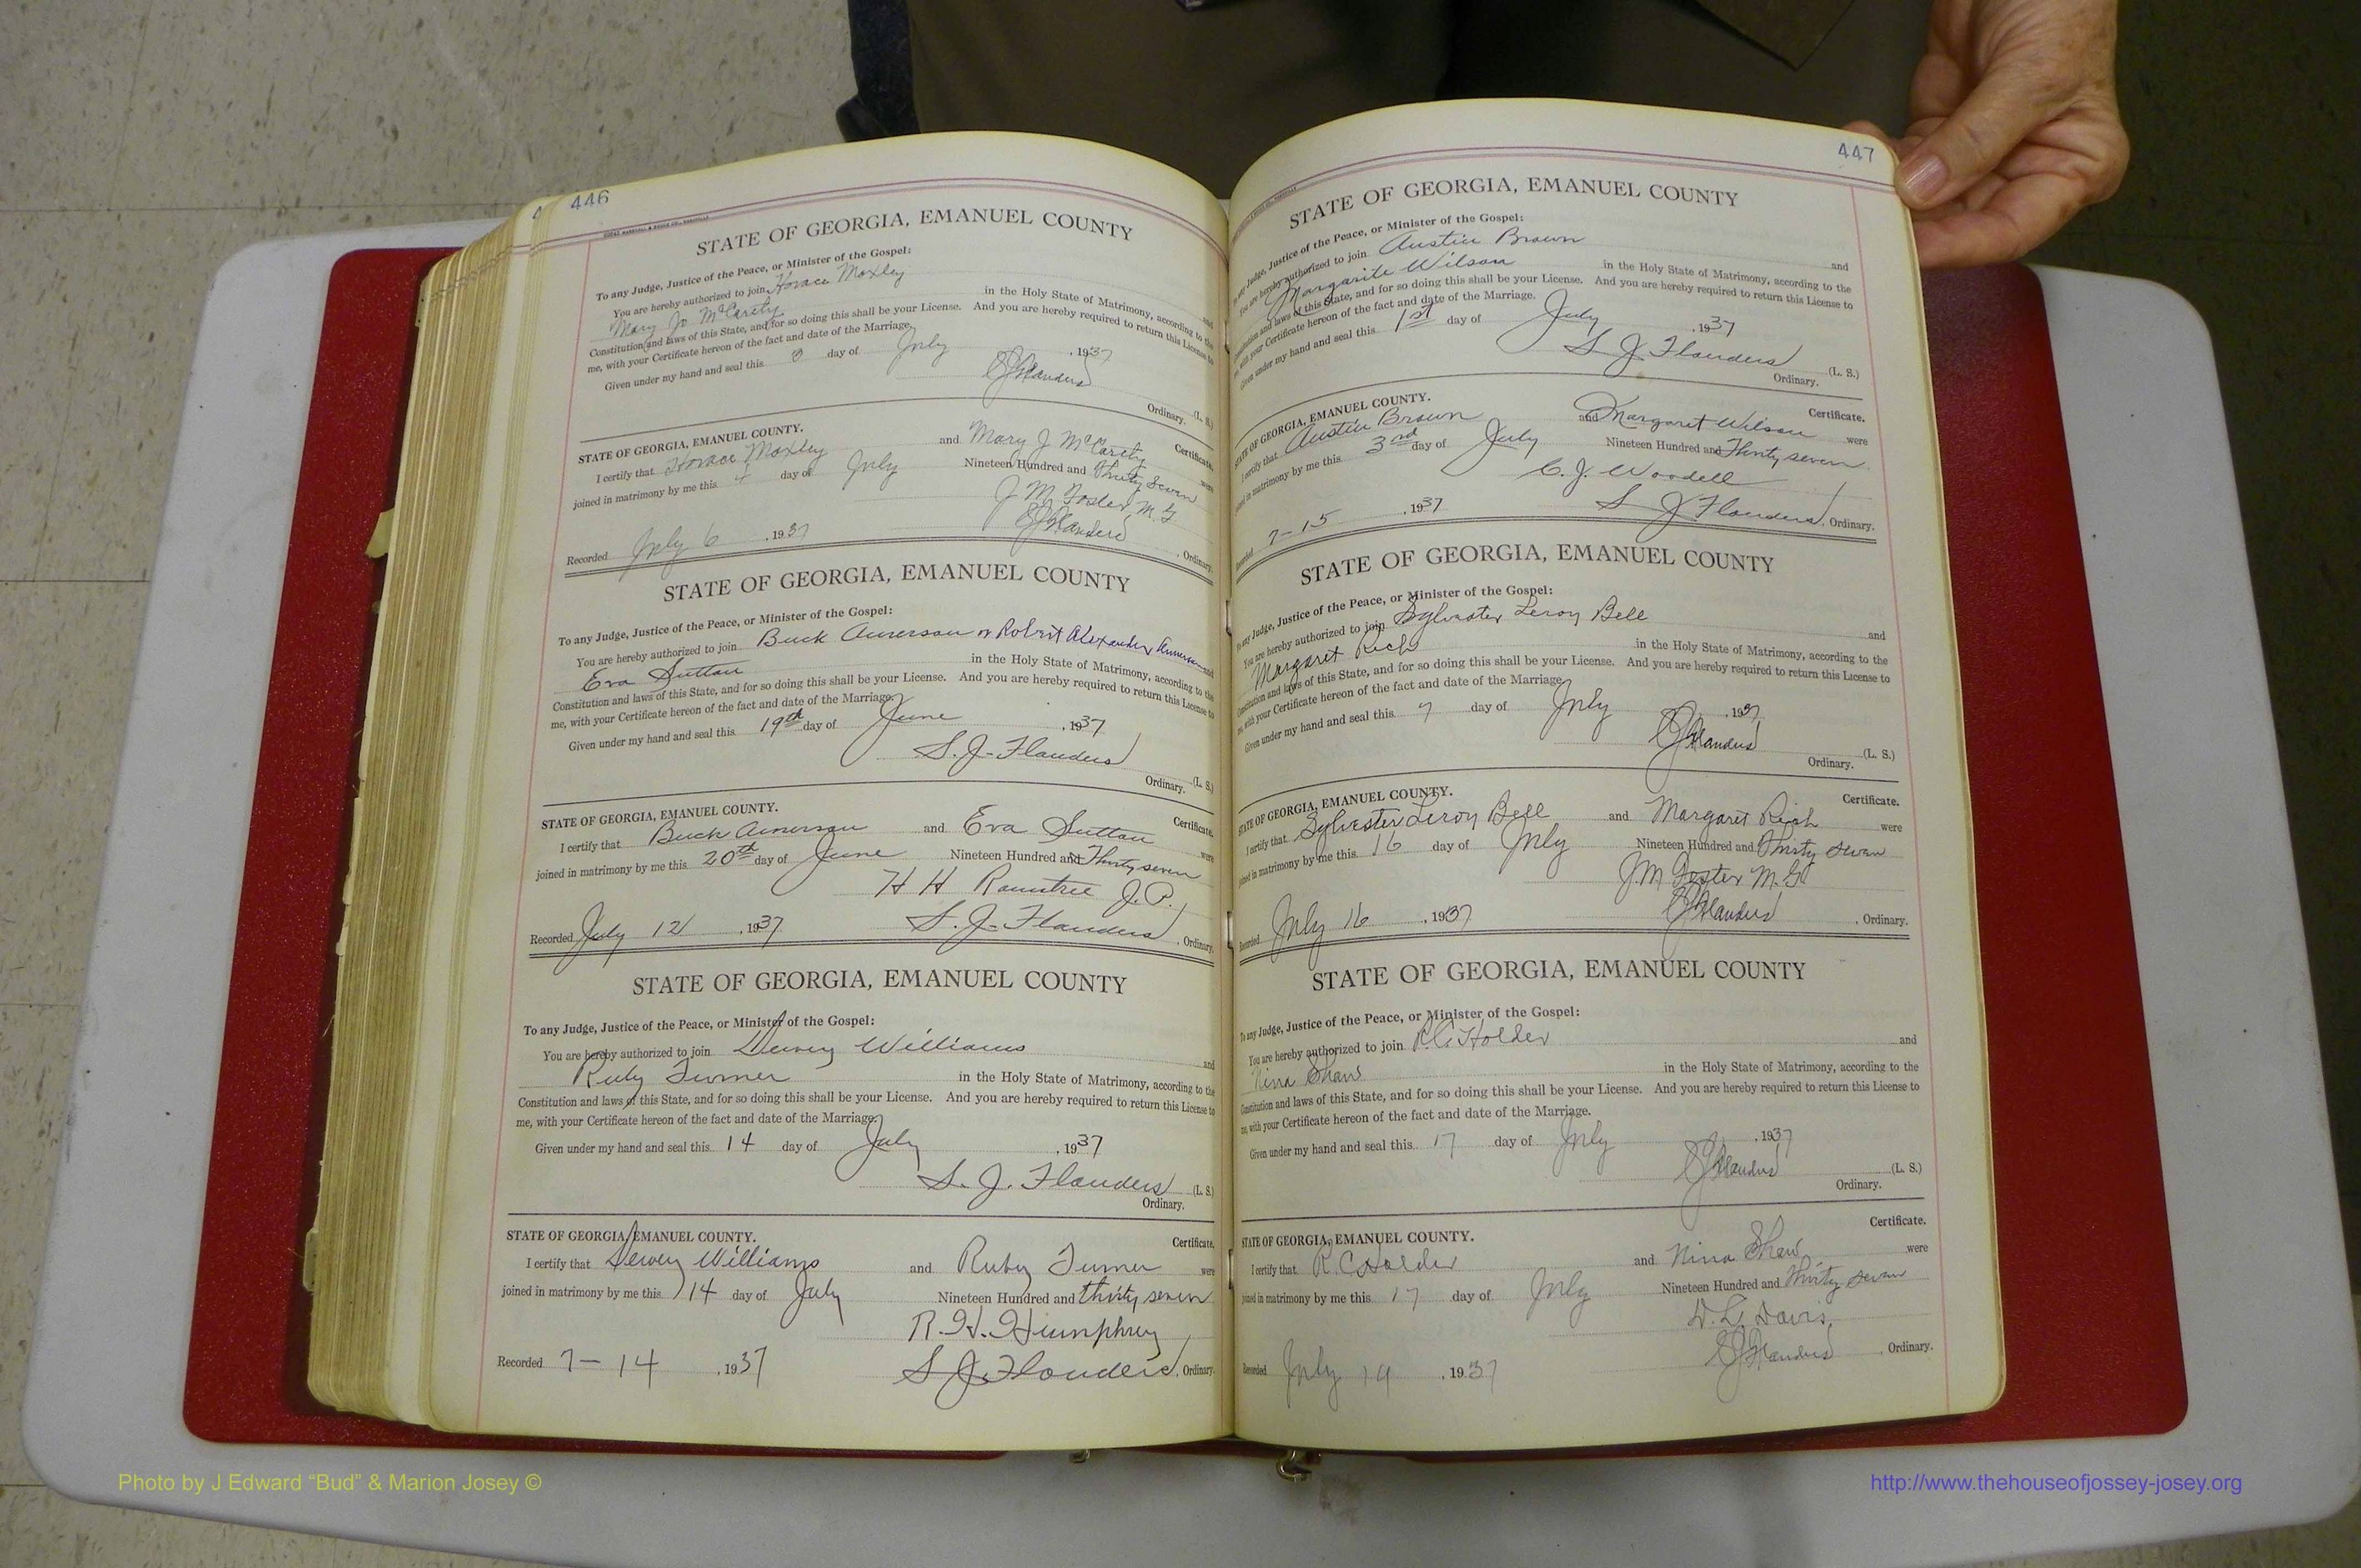 446
STATE OF GEORGIA, EMANUEL COUNTY
To any Judge, Justice of the Peace, or Minister of the Gospel:
You are hereby authorized to join Horace Moxley and
Mary Jo McCarity in the Holy State of Matrimony, according to the
Constitution and laws of this State, and for so doing this shall be your License. And you are hereby required to return this License to
me, with your Certificate hereon of the fact and date of the Marriage.
Given under my hand and seal this day of July, 1937
S J Flanders (L. S.)
Ordinary.
STATE OF GEORGIA, EMANUEL COUNTY. Certificate.
I certify that Horace Moxley and Mary J McCarity were
joined in matrimony by me this 4 day of July Nineteen Hundred and Thirty Seven
J M Foster, M. G
Recorded July 6, 1937 S J Flanders, Ordinary.
STATE OF GEORGIA, EMANUEL COUNTY
To any Judge, Justice of the Peace, or Minister of the Gospel:
You are hereby authorized to join Buck Amerson or Robert Alexander Amerson and
Eva Sutton in the Holy State of Matrimony, according to the
Constitution and laws of this State, and for so doing this shall be your License. And you are hereby required to return this License to
me, with your Certificate hereon of the fact and date of the Marriage.
Given under my hand and seal this 19th day of June, 1937
S. J. Flanders (L. S.)
Ordinary.
STATE OF GEORGIA, EMANUEL COUNTY. Certificate.
I certify that Buck Amerson and Eva Sutton were
joined in matrimony by me this 20th day of June Nineteen Hundred and Thirty seven
H H Rountree J. P.
Recorded July 12, 1937 S. J. Flanders, Ordinary.
STATE OF GEORGIA, EMANUEL COUNTY
To any Judge, Justice of the Peace, or Minister of the Gospel:
You are hereby authorized to join Dewey Williams and
Ruby Turner in the Holy State of Matrimony, according to the
Constitution and laws of this State, and for so doing this shall be your License. And you are hereby required to return this License to
me, with your Certificate hereon of the fact and date of the Marriage.
Given under my hand and seal this 14 day of July, 1937
S. J. Flanders (L. S.)
Ordinary.
STATE OF GEORGIA, EMANUEL COUNTY. Certificate.
I certify that Dewey Williams and Ruby Turner were
joined in matrimony by me this 14 day of July Nineteen Hundred and thirty seven
R. H. Humphrey
Recorded 7-14, 1937 S J. Flanders, Ordinary.
447
STATE OF GEORGIA, EMANUEL COUNTY
To any Judge, Justice of the Peace, or Minister of the Gospel:
You are hereby authorized to join Austin Brown and
Margarite Wilson in the Holy State of Matrimony, according to the
Constitution and laws of this State, and for so doing this shall be your License. And you are hereby required to return this License to
me, with your Certificate hereon of the fact and date of the Marriage.
Given under my hand and seal this 1st day of July, 1937
S. J. Flanders (L. S.)
Ordinary.
STATE OF GEORGIA, EMANUEL COUNTY. Certificate.
I certify that Austin Brown and Margaret Wilson were
joined in matrimony by me this 3rd day of July Nineteen Hundred and Thirty seven
C. J. Woodell
Recorded 7-15, 1937 S J Flanders, Ordinary.
STATE OF GEORGIA, EMANUEL COUNTY
To any Judge, Justice of the Peace, or Minister of the Gospel:
You are hereby authorized to join Sylvester Leroy Bell and
Margaret Rich in the Holy State of Matrimony, according to the
Constitution and laws of this State, and for so doing this shall be your License. And you are hereby required to return this License to
me, with your Certificate hereon of the fact and date of the Marriage.
Given under my hand and seal this 7 day of July, 1937
S J Flanders (L. S.)
Ordinary.
STATE OF GEORGIA, EMANUEL COUNTY. Certificate.
I certify that Sylvester Leroy Bell and Margaret Rich were
joined in matrimony by me this 16 day of July Nineteen Hundred and Thirty seven
J. M Foster M. G
Recorded July 16, 1937 S J Flanders, Ordinary.
STATE OF GEORGIA, EMANUEL COUNTY
To any Judge, Justice of the Peace, or Minister of the Gospel:
You are hereby authorized to join R. C. Holder and
Nina Shaw in the Holy State of Matrimony, according to the
Constitution and laws of this State, and for so doing this shall be your License. And you are hereby required to return this License to
me, with your Certificate hereon of the fact and date of the Marriage.
Given under my hand and seal this 17 day of July, 1937
S J Flanders (L. S.)
Ordinary.
STATE OF GEORGIA, EMANUEL COUNTY. Certificate.
I certify that R. C Holder and Nina Shaw were
joined in matrimony by me this 17 day of July Nineteen Hundred and Thirty seven
D. L. Davis
Recorded July 19, 1937 S J Flanders, Ordinary.
Photo by J Edward “Bud” & Marion Josey ©
http://www.thehouseofjossey-josey.org